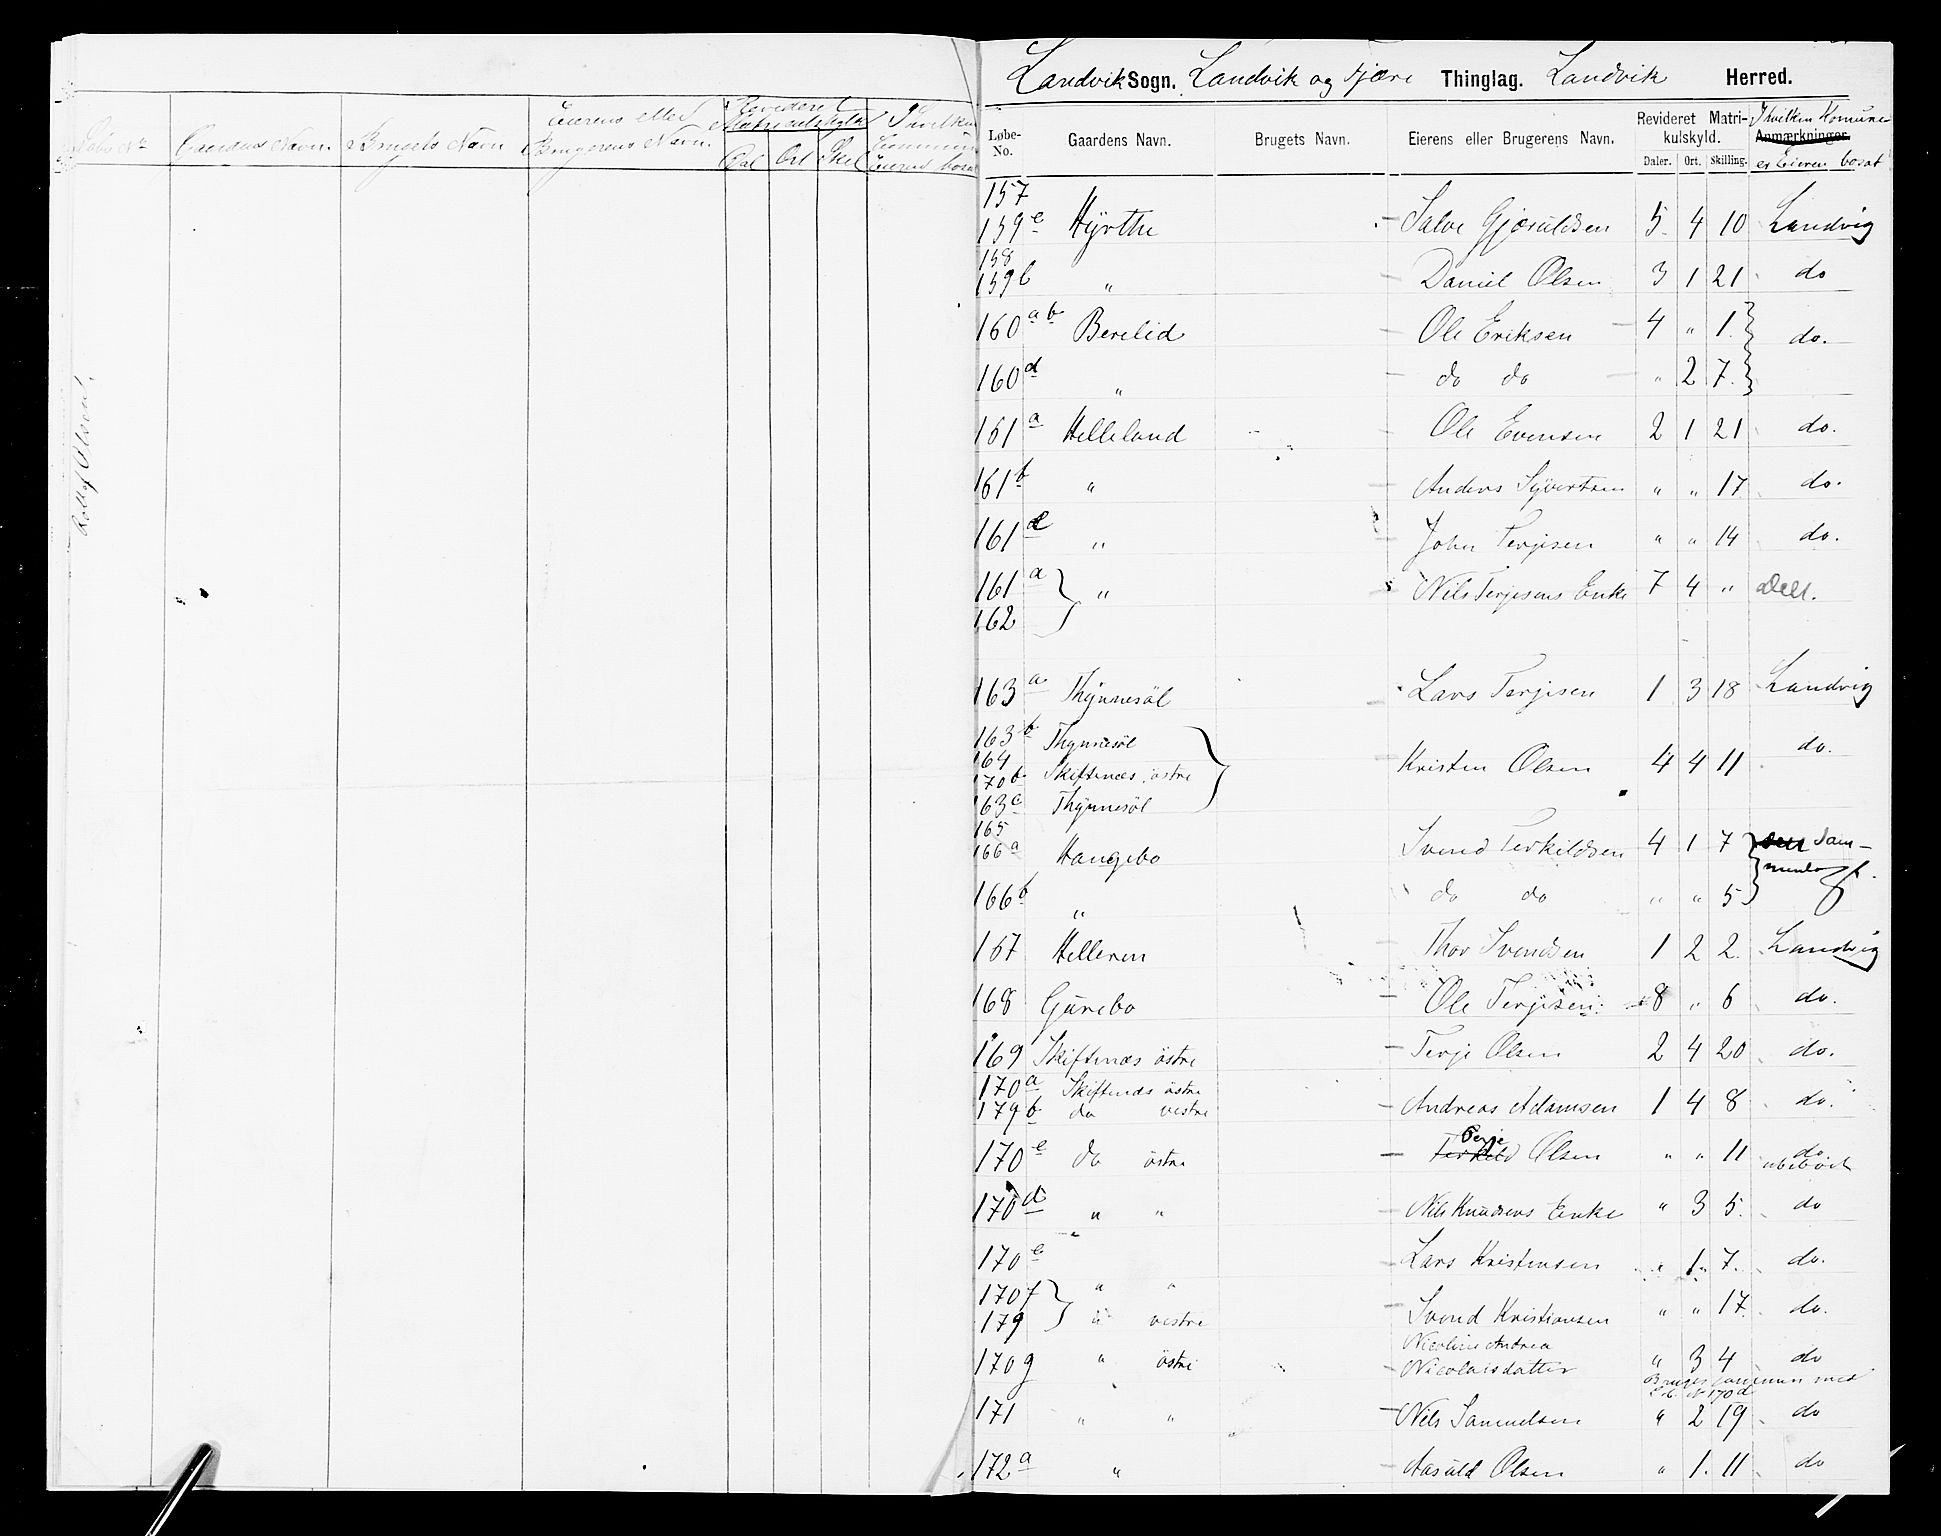 Løbe No Gaardens Navn. Brugets Navn Eierens eller Brugerens Navn. Revideret Matriculskyld Dal Ort Skil I hvilken Commune Eieren bosat
Landvik Sogn. Landvik og Fjære Thinglag. Landvik Herred.
Løbe-No. Gaardens Navn. Brugets Navn. Eierens eller Brugerens Navn. Revideret Matrikulskyld. Daler. Ort. Skilling. Anmærkninger. I hvilken Komune er Eieren bosat
157
159e Hyrthe Salve Gjeruldsen 5 4 10 Landvig
158
159b " Daniel Olsen 3 1 21 do
160ab Berelid Ole Eriksen 4 " 1 do.
160d " do do " 2 7.
161a Helleland Ole Evensen 2 1 21 do.
161b " Anders Syvertsen " " 17 do.
161 " John Terjesen " " 14 do.
161a " Nils Terjesens Enke 7 4 " Delt.
162
163a Thynnesöl Lars Terjesen 1 3 18 Landvig
163b Thynnesöl do.
164
170b Skiftenæs östre Kristen Olsen 4 4 11
163c Thynnesöl
165
166a Haugebo Svend Terkildsen 4 1 7 Sam-
menlagt.
166b " do do " " 5
167 Helleren Thor Svendsen 1 2 2. Landvig
168 Gurebo Ole Terjesen 8 " 6 do.
169 Skiftenæs östre Terje Olsen 2 4 20 do.
170a Skiftenæs östre
179b do vestre Andreas Adamsen 1 4 8 do.
Terje
170c do östre Terkild Olsen " " 11 do
ubeboet
170d " " Nils Knudsens Enke " 3 5. do
170e " " Lars Kristensen " 1 7. do.
170f
179 " vestre Svend Kristiansen " " 17 do.
Nicoline Andrea
170g " östre Nicolaisdatter " 3 4 do
Bruges sammen med
L. No 170d
171 " " Nils Samuelsen " 2 19 do
172a " Aasuld Olsen " 1. 11 do